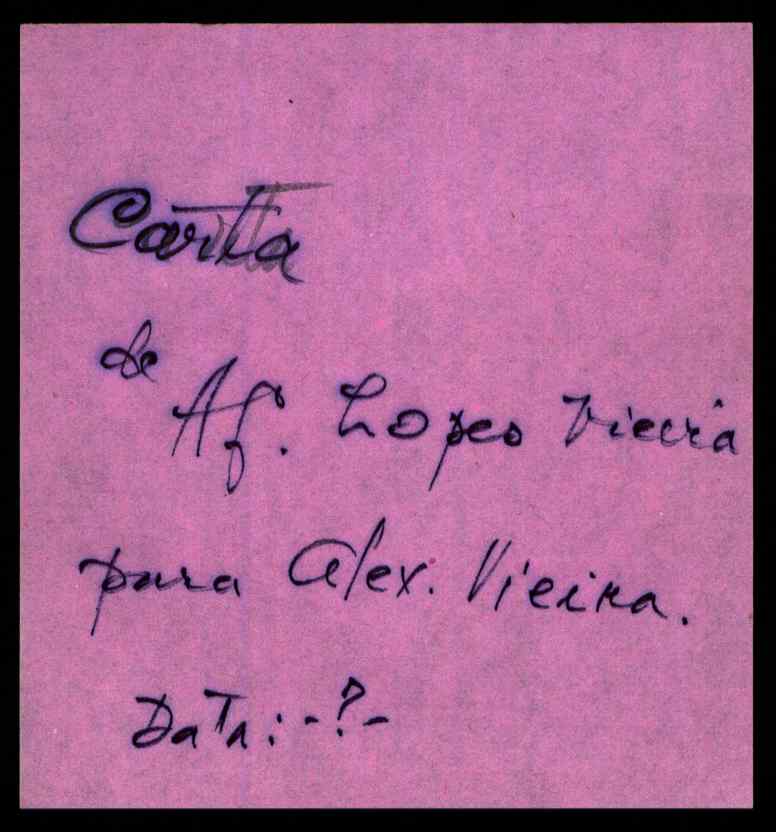 Carta
de
Af. Lopes Vieira
para Alex. Vieira.
Data: -?-